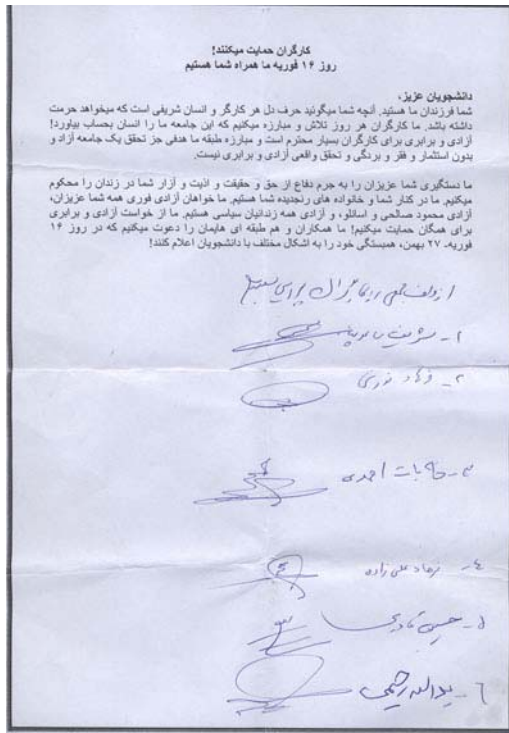 کارگران حمایت میکنند!
روز ۱۶ فوریه ما همراه شما هستیم
دانشجویان عزیز،
شما فرزندان ما هستید. آنچه شما میگوئید حرف دل هر کارگر و انسان شریفی است که میخواهد حرمت
داشته باشد. ما کارگران هر روز تلاش و مبارزه میکنیم که این جامعه ما را انسان بحساب بیاورد!
آزادی و برابری برای کارگران بسیار محترم است و مبارزه طبقه ما هدفی جز تحقق یک جامعه آزاد و
بدون استثمار و فقر و بردگی و تحقق واقعی آزادی و برابری نیست.
ما دستگیری شما عزیزان را به جرم دفاع از حق و حقیقت و اذیت و آزار شما در زندان را محکوم
میکنیم. ما در کنار شما و خانواده های رنجدیده شما هستیم. ما خواهان آزادی فوری همه شما عزیزان،
آزادی محمود صالحی و اسانلو، و آزادی همه زندانیان سیاسی هستیم. ما از خواست آزادی و برابری
برای همگان حمایت میکنیم! ما همکاران و هم طبقه ای هایمان را دعوت میکنیم که در روز ۱۶
فوریه- ۲۷ بهمن، همبستگی خود را به اشکال مختلف با دانشجویان اعلام کنند!
۱-
۲-
۳- احمدی
۴- فرهاد علی زاده
۵- حسین
۶- یداله رحیمی